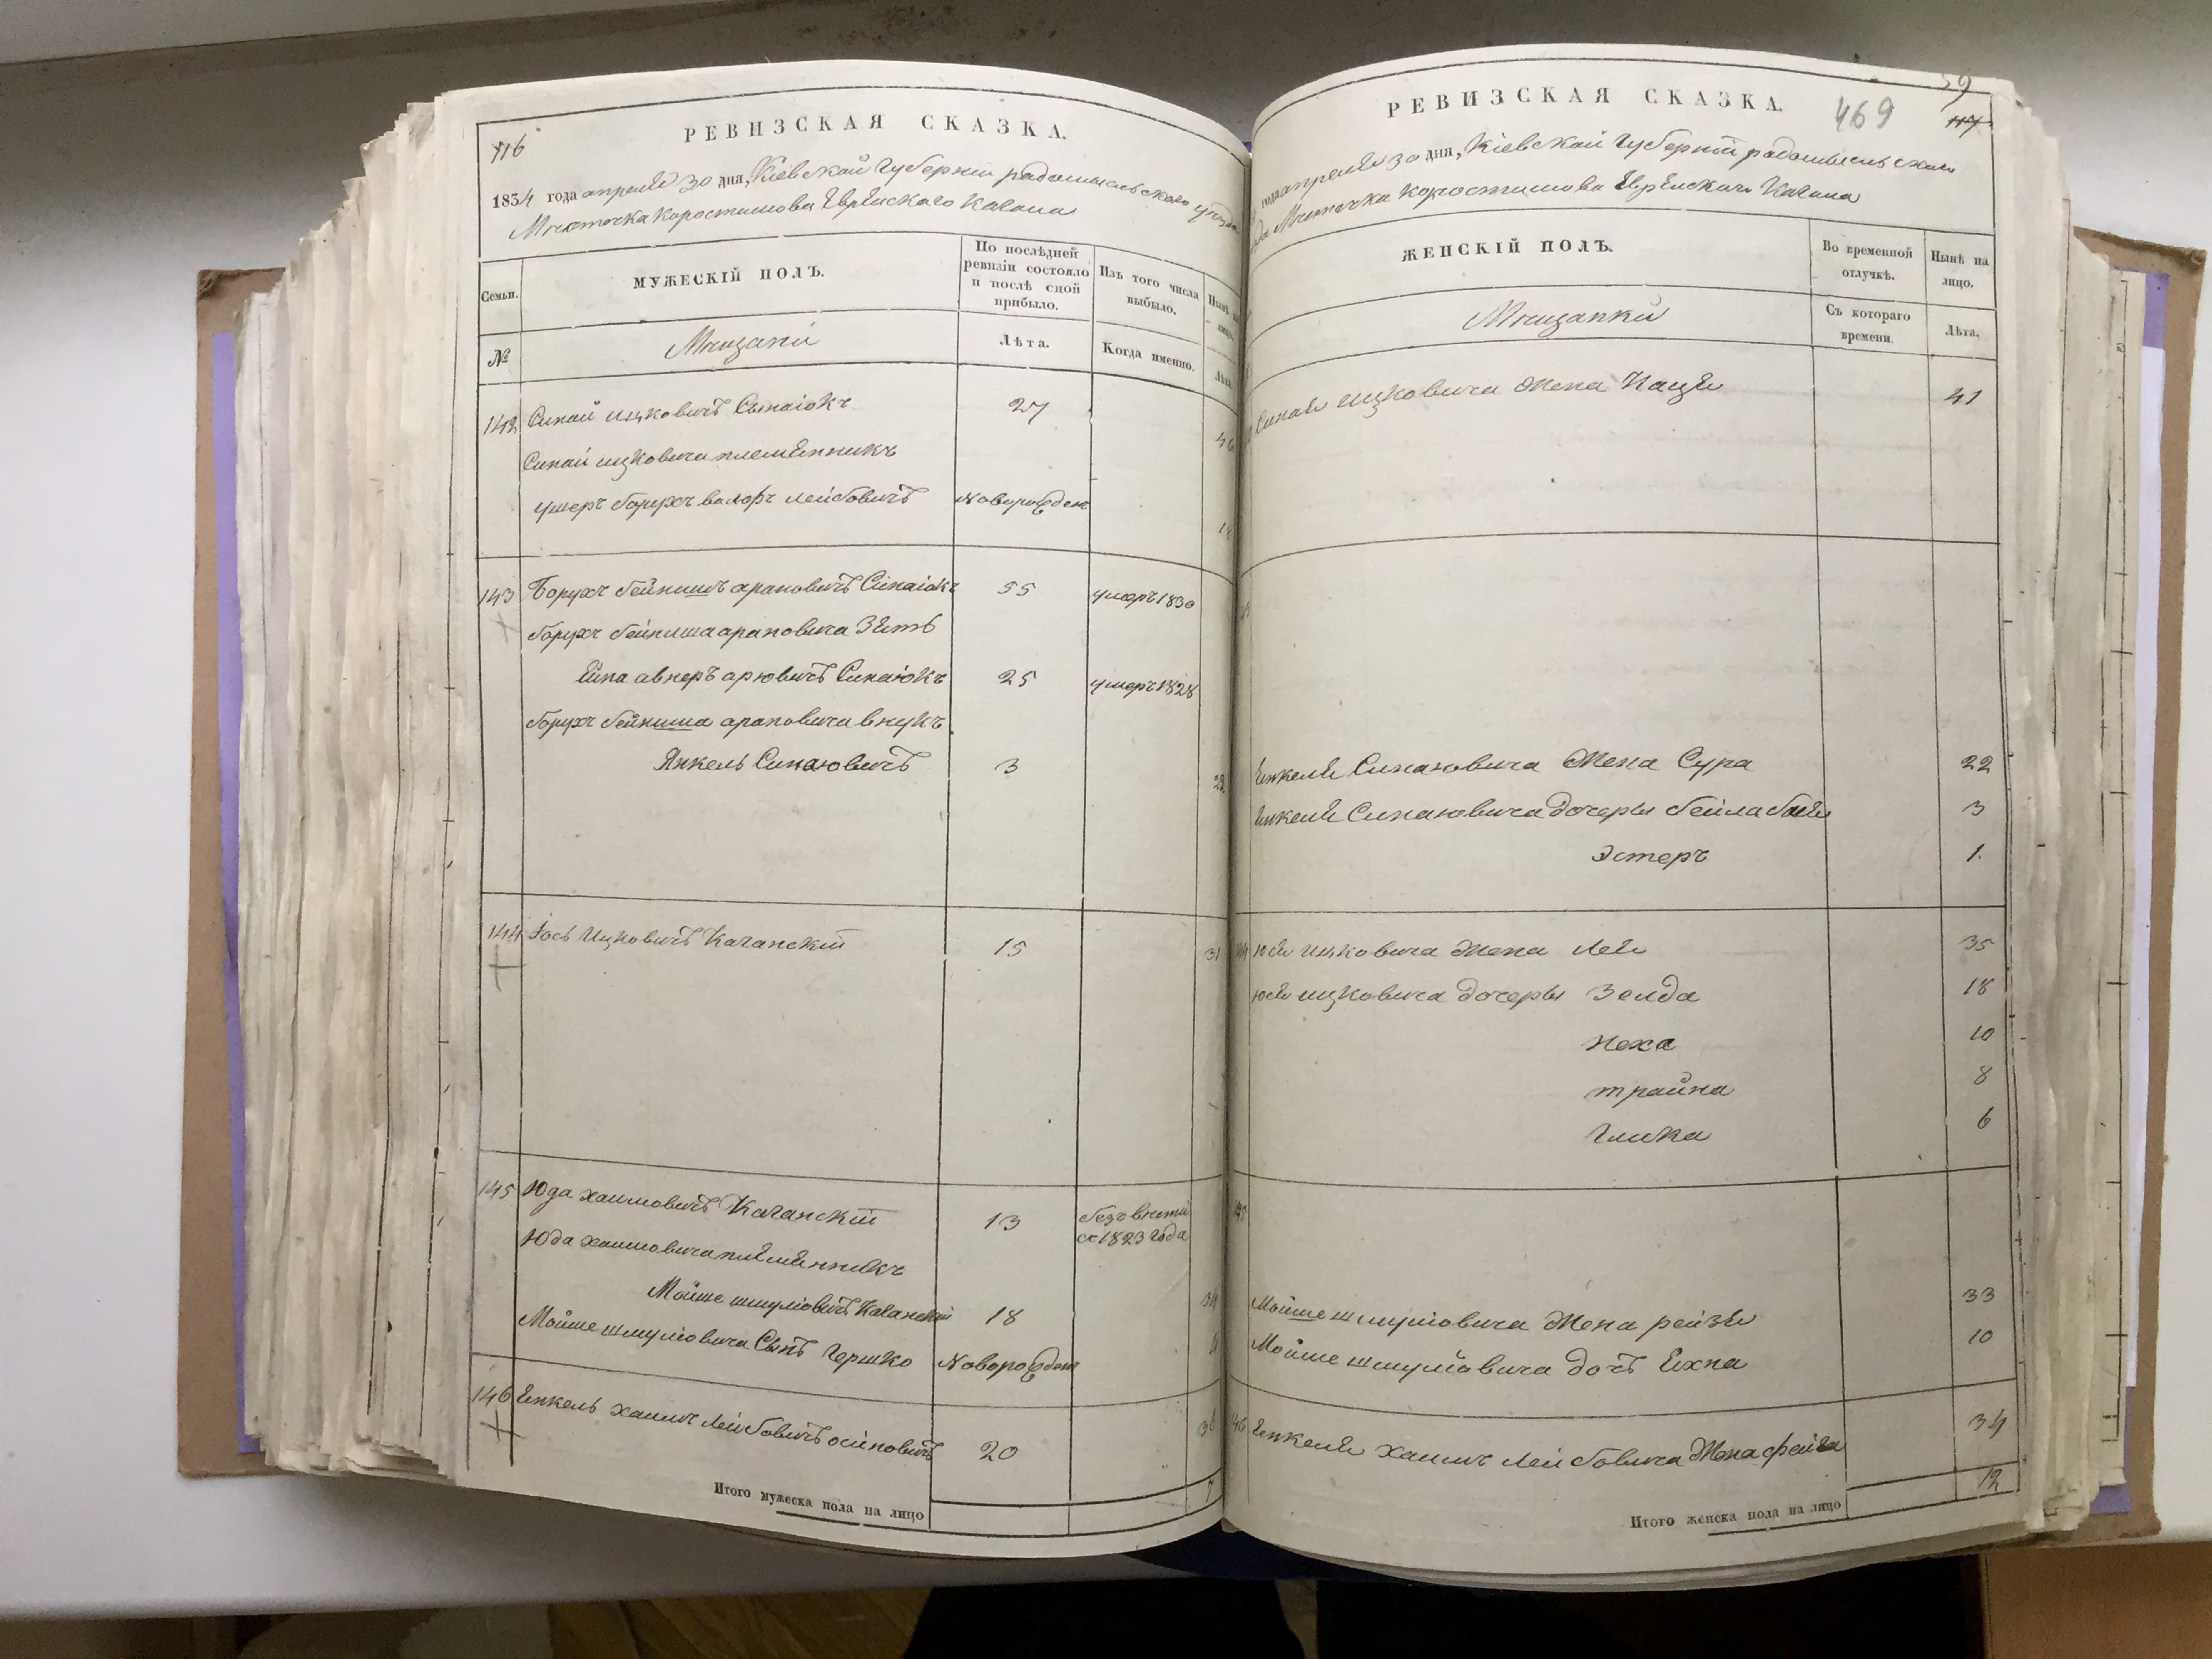 116
РЕВИЗСКАЯ СКАЗКА.
1834 года апреля 30 дня, Кіевской Губерніи радомысльского уѣзда
Мѣсточка Коростишова Еврейскаго Кагала
Семьи.
МУЖЕСКІЙ ПОЛЪ.
По послѣдней ревизіи состояло и послѣ оной прибыло.
Изъ того числа выбыло.
№
Мѣщани
Лѣта.
Когда именно.
Лѣта
142 Синай ицковичъ Сынаюкъ 27 46
Синай ицковича племенникъ
ушеръ борухъ вольфъ лейбовичъ новорожден 18
143 Борухъ бейнишъ ароновичъ Синаюкъ 55 умеръ 1830
борухъ бейниша ароновича Зять
авнеръ арювичъ Синаюкъ 25 умеръ 1828
борухъ бейниша ароновича внукъ
Янкель Синаювичъ 3 22
144 Іось Ицковичъ Каганскій 15 31
145 Юда хаимовичъ Каганскій 13 безъ вѣсти съ 1823 года
Юда хаимовича племенникъ
Мойше шмуліовичъ Каганскій 18 34
Мойше шмуліовича Сынъ Гершко Новорожден
146 Енкель хаимъ лейбовичъ осиповичъ 20 36
Итого мужеска пола на лицо 7
59
469
117
РЕВИЗСКАЯ СКАЗКА.
года апреля 30 дня, Кіевской Губерніи радомысльскаго
Мѣсточка Коростишова Еврейскаго Кагала
ЖЕНСКІЙ ПОЛЪ.
Во временной отлучкѣ.
Нынѣ на лицо.
Мѣщанки
Съ котораго времени.
Лѣта.
Синая ицковича жена Кася 41
Енкеля Синаювича жена Сура 22
Енкеля Синаювича дочеры бейла 3
Эстеръ 1.
Юся ицковича жена Лея 35
Юся ицковича дочеры Зелда 18
Неха 10
трайна 8
Глика 6
145
Мойше шмуліовича жена рейзя 33
Мойше шмуліовича дочъ Ехна 10
146 Енкеля хаимъ лейбовича жена фейга 34
Итого женска пола на лицо 12